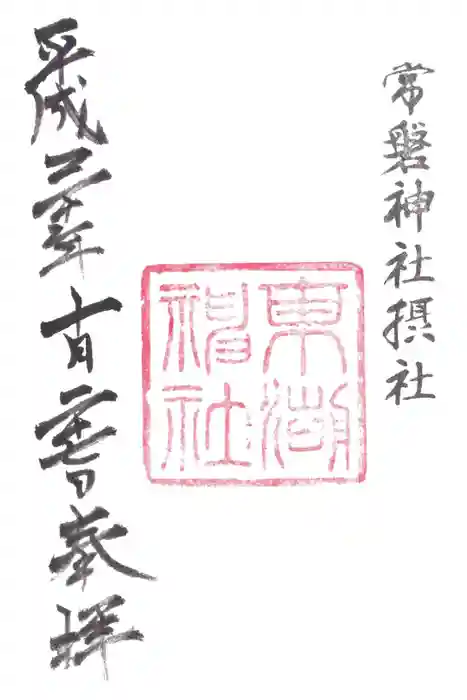 常磐神社摂社
東湖
神社
平成三十年十月二十七日奉拝